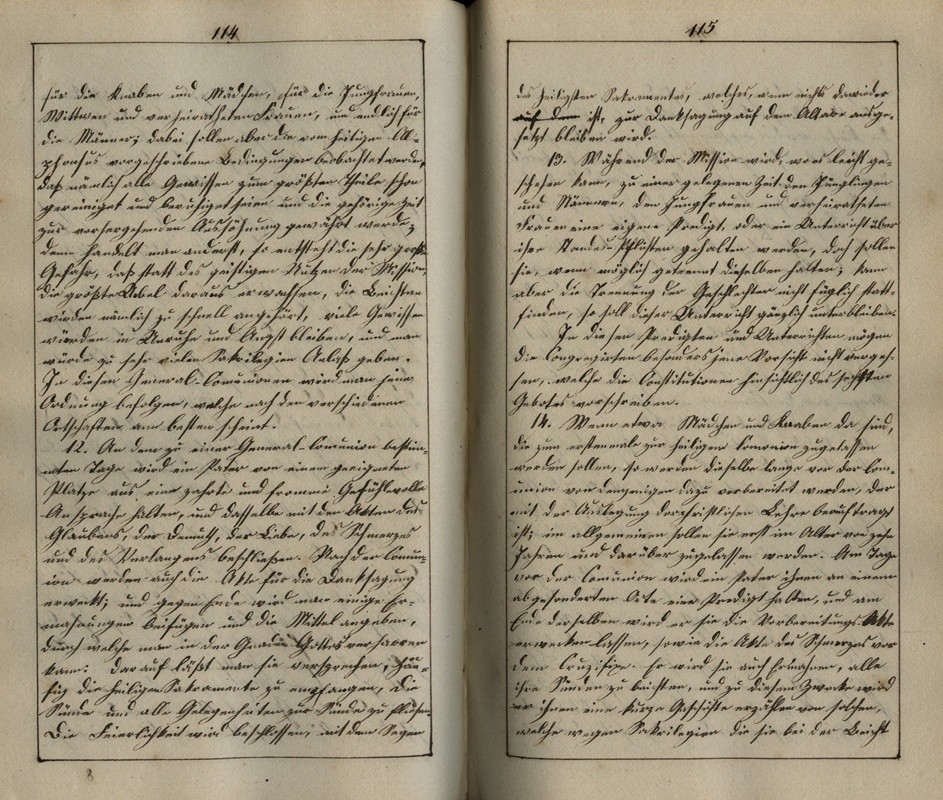 114
für die Knaben und Mädchen, für die Jungfrauen,
Wittwen und verheiratheten Frauen, und endlich für
die Männer; dabei sollen aber die vom heiligen Al-
phonsus vorgeschriebene Bedingungen beobachtet werden,
daß nämlich alle Gewissen zum größten Theile schon
gereiniget und beruhiget seien und die gehörige Zeit
zur vorhergehenden Aussöhnung gewährt werde;
denn handelt man anderst, so entsteht die sehr große
Gefahr, daß statt des geistigen Nutzen der Mission,
die größte Uebel daraus erwachsen, die Beichten
würden nämlich zu schnell angehört, viele Gewissen
würden in Unruhe und Angst bleiben, und man
würde zu sehr vielen Sakrilegien Anlaß geben.
In diesen General-Comunionen wird man jene
Ordnung befolgen, welche nach den verschiedenen
Ortschaften am besten scheint.
12. An dem zu einer General-Comunion bestim-
mten Tage wird ein Pater von einem geeigneten
Platze aus eine zahrte und fromme Gefühlvolle
Ansprache halten, und dasselbe mit den Akten des
Glaubens, der Demuth, der Liebe, des Schmerzes
und des Verlangens beschließen. Nach der Comun-
ion werden auch die Akte für die Danksagung
erweckt; und gegen Ende wird man einige Er-
mahnungen beifügen und die Mittel angeben,
durch welche man in der Gnade Gottes verharren
kann: darauf läßt man sie versprechen, häu-
fig die heiligen Sakramente zu empfangen, die
Sünde und alle Gelegenheiten zur Sünde zu fliehen.
Die Feierlichkeit wird beschlossen, mit dem Segen
115
des heiligsten Sakramentes, welches, wenn nichts dawieder
auf dem ist, zur Danksagung auf dem Altare ausge-
setzt bleiben wird.
13. Während der Mission wird, wo es leicht ge-
schehen kann, zu einer gelegenen Zeit den Jünglingen
und Männern, den Jungfrauen und verheiratheten
Frauen eine eigene Predigt, oder ein Unterricht über
ihre Standes-Pflichten gehalten werden, doch sollen
sie, wenn möglich getrennt dieselben halten; kann
aber die Trennung der Geschlechter nicht füglich statt-
finden, so soll dieser Unterricht gänzlich unterbleiben.
In diesen Predigten und Unterrichten mögen
die Congregirten besonders jene Vorsicht nicht verges-
sen, welche die Constitutionen hinsichtlich des sechsten
Gebotes vorschreiben.
14. Wenn etwa Mädchen und Knaben da sind,
die zum erstenmale zur heiligen Comunion zugelassen
werden sollen, so werden dieselbe lange vor der Com-
union von demjenigen dazu vorbereitet werden, der
mit der Auslegung der christlichen Lehre beauftragt
ist; im allgemeinen sollen sie erst im Alter von zehn
Jahren und darüber zugelassen werden. Am Tage
vor der Comunion wird ein Pater ihnen an einem
abgesonderten Orte eine Predigt halten, und am
Ende derselben wird er sie die Vorbereitungs Akte
erwecken lassen, sowie die Akte des Schmerzes vor
dem Cruzifixe. Er wird sie auch ermahnen, alle
ihre Sünden zu beichten, und zu diesem Zwecke wird
er ihnen eine kurze Geschichte erzählen von solchen,
welche wegen Sakrilegien die sie bei der Beicht